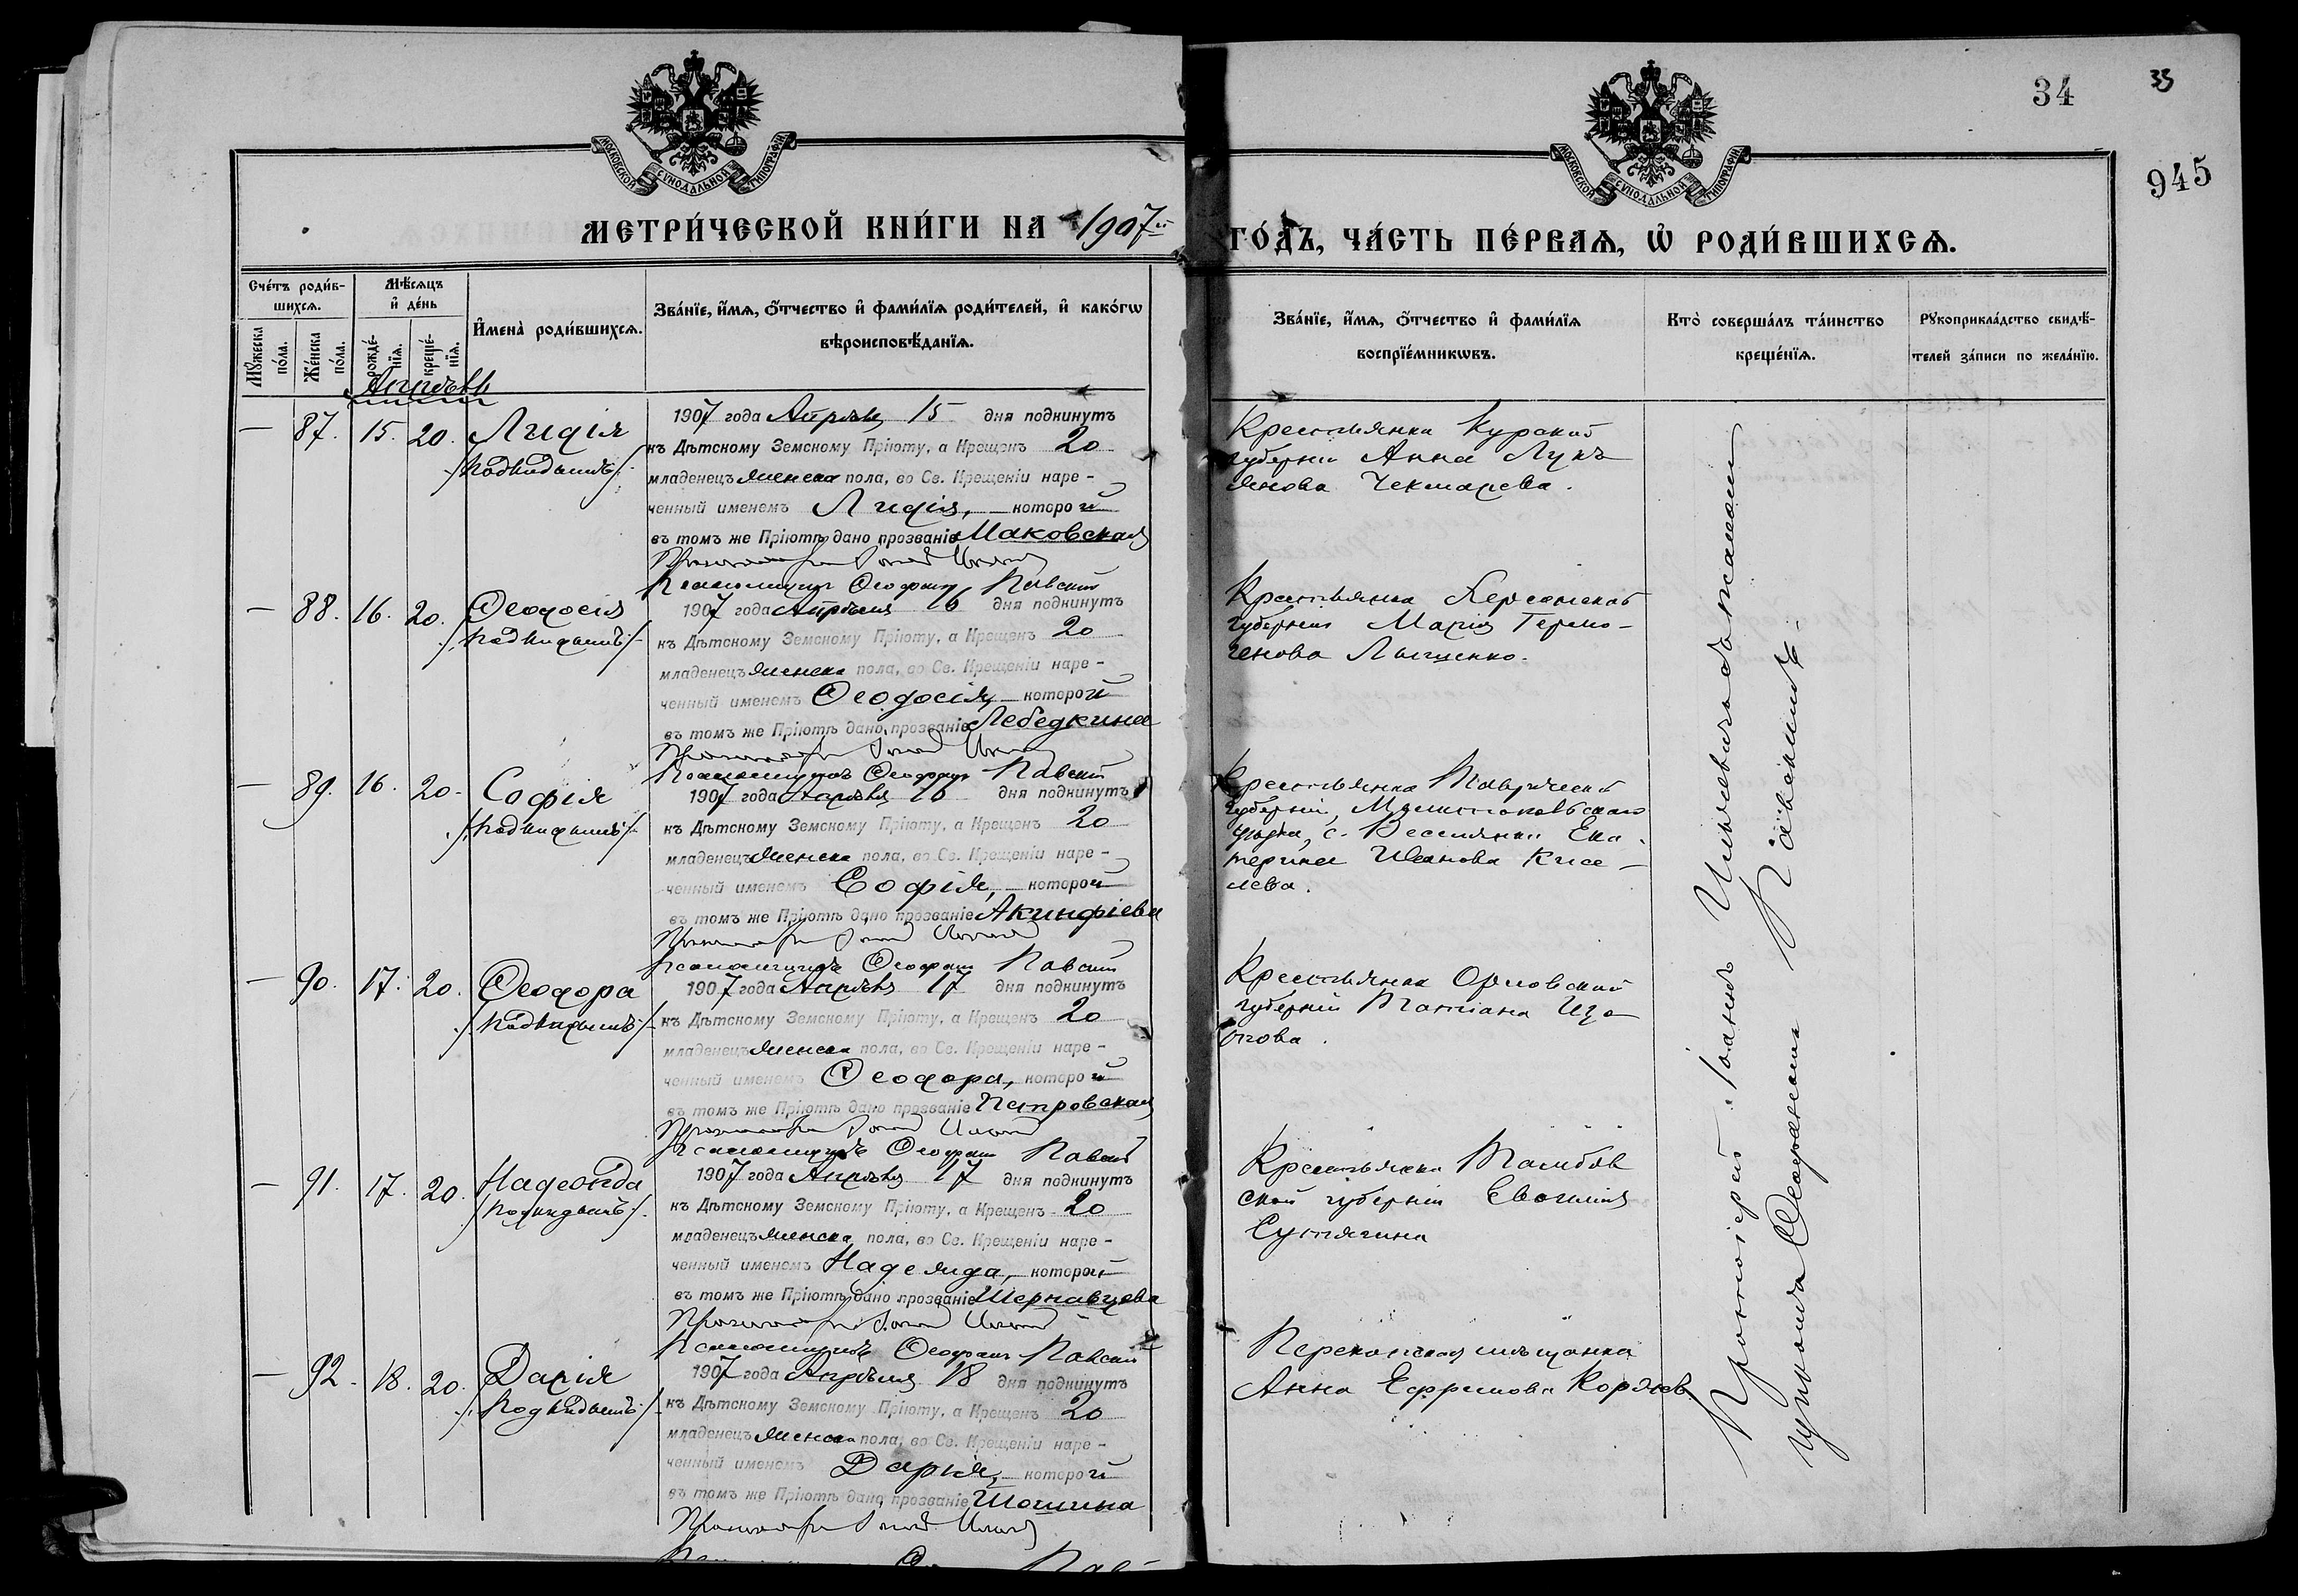 34
33
945
МОСКОВСКОЙ СѴНОДАЛЬНОЙ ТИПОГРАФІИ
МОСКОВСКОЙ СѴНОДАЛЬНОЙ ТИПОГРАФІИ
МЕТРИ́ЧЕСКОЙ КНИ́ГИ НА 1907й
ГО́ДЪ, ЧА́СТЬ ПЕ́РВАѦ, Ѡ҆ РОДИ́ВШИХСѦ.
Сче́тъ роди́в-
шихсѧ.
Мꙋжеска по́ла.
Же́нска по́ла.
Мѣ́сѧцъ
и҆ де́нь
рожде́-нїѧ.
креще́-нїѧ.
И҆мена̀ роди́вшихсѧ.
Зва́нїе, и҆́мѧ, ѻ҆́тчество и҆ фами́лїѧ роди́телей, и҆ како́гѡ
вѣроисповѣ́данїѧ.
Зва́нїе, и҆́мѧ, ѻ҆́тчество и҆ фами́лїѧ
воспрїе́мникѡвъ.
Кто̀ соверша́лъ та́инство
креще́нїѧ.
Рꙋкоприкла́дство свидѣ́-
телей за́писи по жела́нїю.
Апрѣль
— 87. 15. 20. Лидія
/Подкидышъ/
1907 года Апрѣля 15 дня подкинутъ
къ Дѣтскому Земскому Пріюту, а Крещенъ 20
младенецъ женска пола, во Св. Крещеніи наре-
ченный именемъ Лидія, которой
въ томъ же Пріютѣ дано прозваніе Маковская
Псаломщикъ Ѳеофанъ Павскій
Крестьянка Курской
губерніи Анна Лукъ
янова Чекмарева.
— 88. 16. 20. Ѳеодосія
/Подкидышъ/
1907 года Апрѣля 16 дня подкинутъ
къ Дѣтскому Земскому Пріюту, а Крещенъ 20
младенецъ женска пола, во Св. Крещеніи наре-
ченный именемъ Ѳеодосія, которой
въ томъ же Пріютѣ дано прозваніе Лебедкина
Псаломщикъ Ѳеофанъ Павскій
Крестьянка Херсонской
губерніи Марія Гермо-
генова Лященко.
— 89. 16. 20. Софія
/Подкидышъ/
1907 года Апрѣля 16 дня подкинутъ
къ Дѣтскому Земскому Пріюту, а Крещенъ 20
младенецъ женска пола, во Св. Крещеніи наре-
ченный именемъ Софія, которой
въ томъ же Пріютѣ дано прозваніе Акинфіева
Псаломщикъ Ѳеофанъ Павскій
Крестьянка Таврической
губерніи,
уѣзда, с. Ека-
терина Иванова Кисе-
лева.
— 90. 17. 20. Ѳеодора
/Подкидышъ/
1907 года Апрѣля 17 дня подкинутъ
къ Дѣтскому Земскому Пріюту, а Крещенъ 20
младенецъ женска пола, во Св. Крещеніи наре-
ченный именемъ Ѳеодора, которой
въ томъ же Пріютѣ дано прозваніе Петровская
Псаломщикъ Ѳеофанъ Павскій
Крестьянка Орловской
губерніи Татіана
— 91. 17. 20. Надежда
/Подкидышъ/
1907 года Апрѣля 17 дня подкинутъ
къ Дѣтскому Земскому Пріюту, а Крещенъ 20
младенецъ женска пола, во Св. Крещеніи наре-
ченный именемъ Надежда, которой
въ томъ же Пріютѣ дано прозваніе Шернавцева
Псаломщикъ Ѳеофанъ Павскій
Крестьянка Тамбов
ской губерніи Евгенія
Сутягина
— 92. 18. 20. Дарія
/Подкидышъ/
1907 года Апрѣля 18 дня подкинутъ
къ Дѣтскому Земскому Пріюту, а Крещенъ 20
младенецъ женска пола, во Св. Крещеніи наре-
ченный именемъ Дарія, которой
въ томъ же Пріютѣ дано прозваніе Шошина
Перекопская мѣщанка
Анна Ефремова
Протоіерей Іоаннъ съ псалом
щикомъ Ѳеофаномъ Павскимъ.